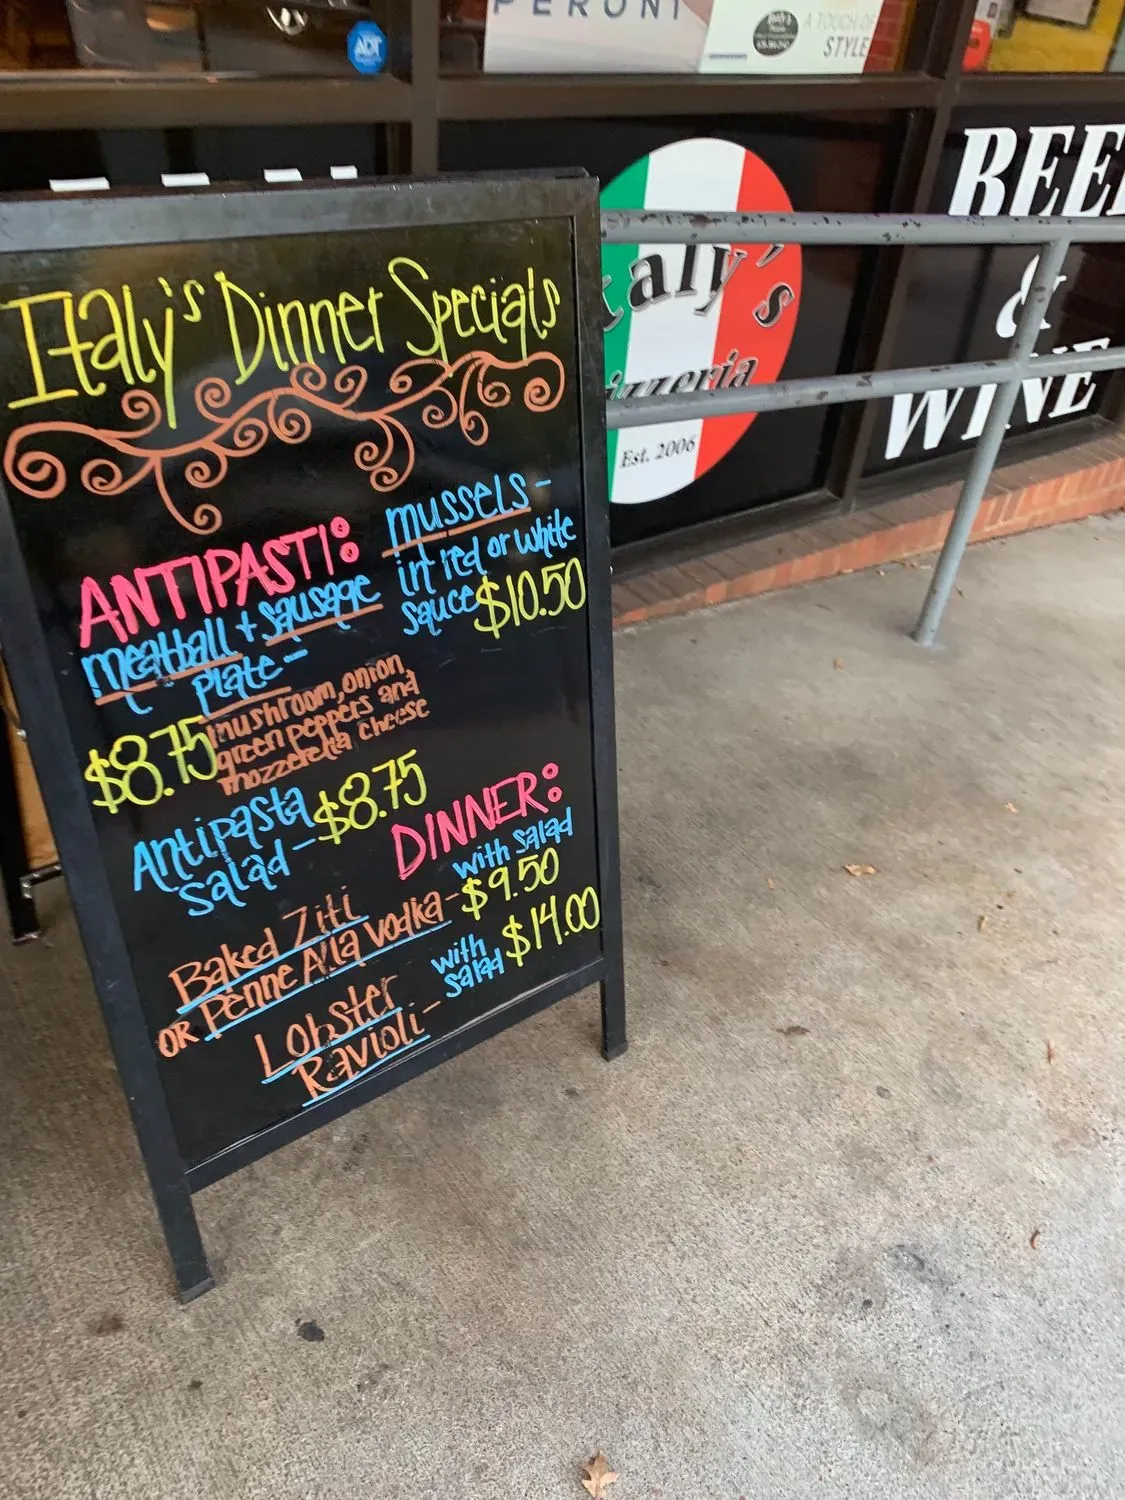 PERONI
A TOUCH OF
STYLE
ADT
Italy's Dinner Specials
ANTIPASTI:
meatball + sausage
plate -
$8.75
mushroom, onion,
green peppers and
mozzerella cheese
mussels -
in red or white
sauce $10.50
Antipasta
salad - $8.75
DINNER:
with salad
Baked Ziti
OR Penne Alla Vodka - $9.50
Lobster
Ravioli -
with
salad $14.00
Italy's
izzeria
Est. 2006
BEE
&
WINE